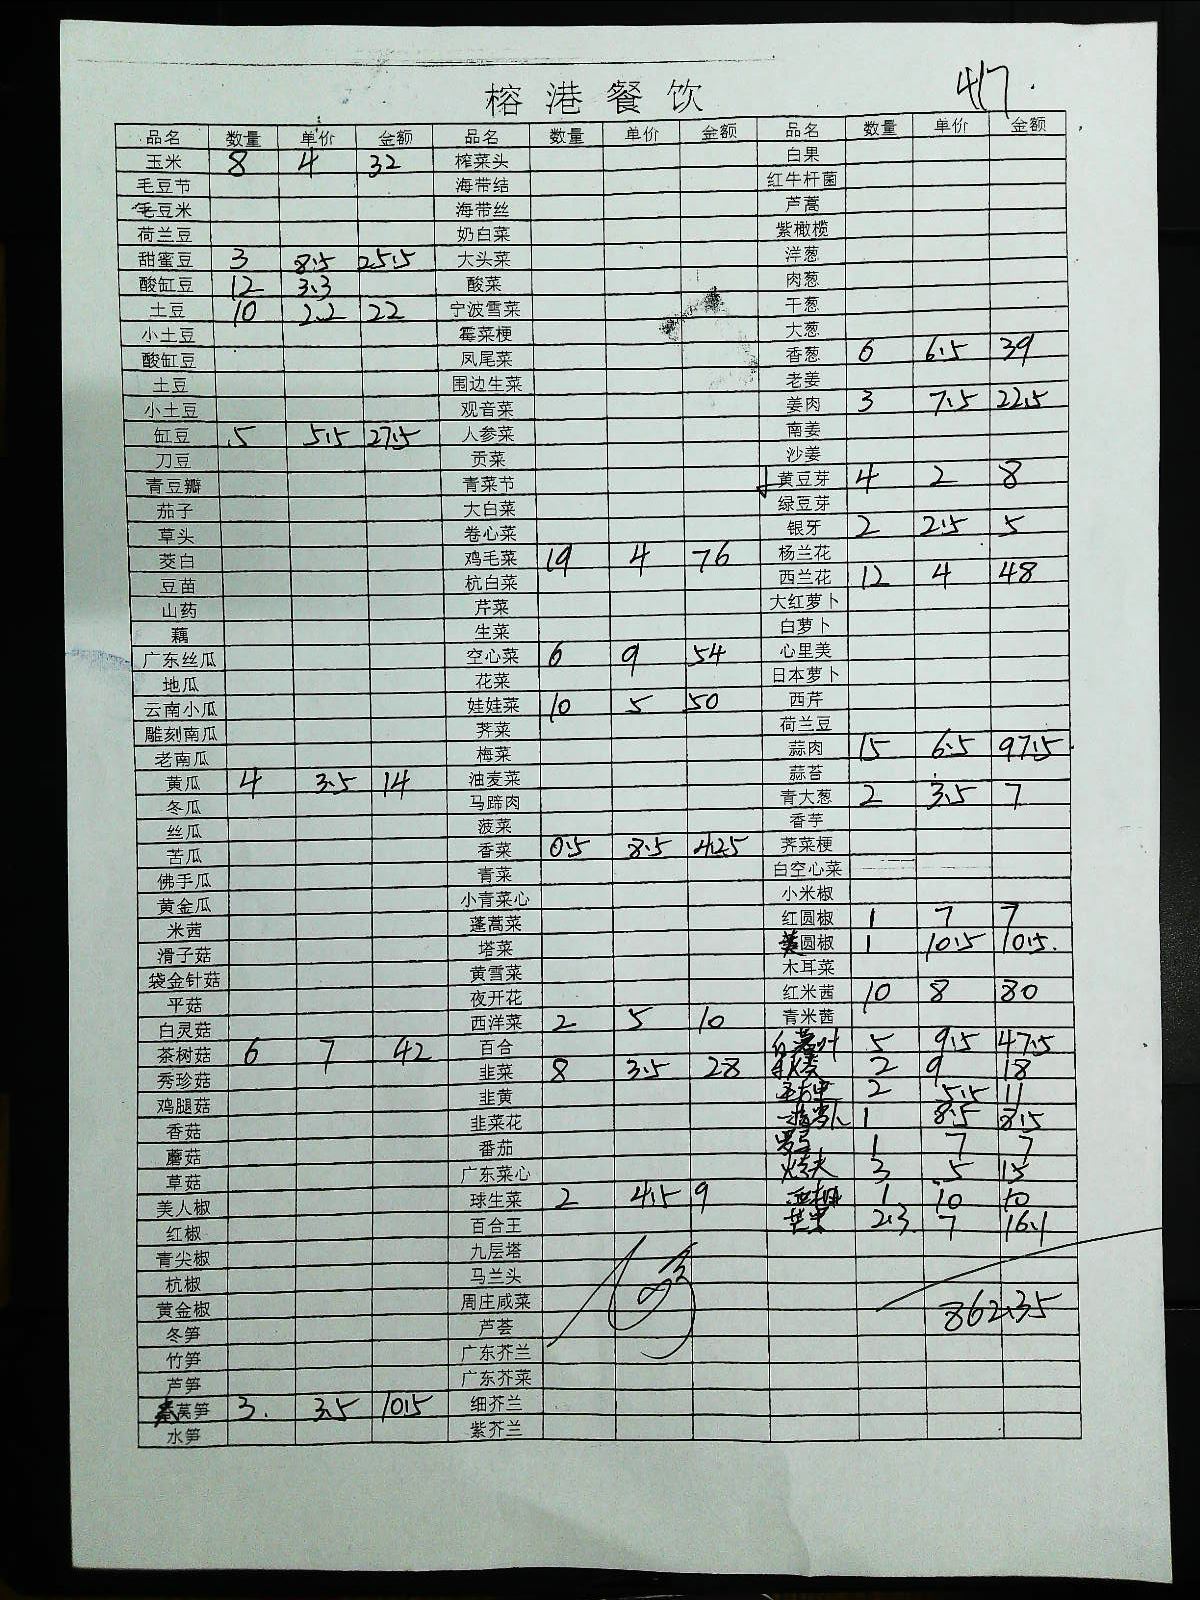 榕港餐饮 4/7
品名 数量 单价 金额 品名 数量 单价 金额 品名 数量 单价 金额
玉米 8 4 32 榨菜头 白果
毛豆节 海带结 红牛杆菌
毛豆米 海带丝 芦蒿
荷兰豆 奶白菜 紫橄榄
甜蜜豆 3 8.5 25.5 大头菜 洋葱
酸缸豆 12 3.3 酸菜 肉葱
土豆 10 2.2 22 宁波雪菜 干葱
小土豆 霉菜梗 大葱
酸缸豆 凤尾菜 香葱 6 6.5 39
土豆 围边生菜 老姜
小土豆 观音菜 姜肉 3 7.5 22.5
缸豆 5 5.5 27.5 人参菜 南姜
刀豆 贡菜 沙姜
青豆瓣 青菜节 黄豆芽 4 2 8
茄子 大白菜 绿豆芽
草头 卷心菜 银牙 2 2.5 5
茭白 鸡毛菜 19 4 76 杨兰花
豆苗 杭白菜 西兰花 12 4 48
山药 芹菜 大红萝卜
藕 生菜 白萝卜
广东丝瓜 空心菜 6 9 54 心里美
地瓜 花菜 日本萝卜
云南小瓜 娃娃菜 10 5 50 西芹
雕刻南瓜 荠菜 荷兰豆
老南瓜 梅菜 蒜肉 15 6.5 97.5
黄瓜 4 3.5 14 油麦菜 蒜苔
冬瓜 马蹄肉 青大葱 2 3.5 7
丝瓜 菠菜 香芋
苦瓜 香菜 0.5 8.5 4.25 荠菜梗
佛手瓜 青菜 白空心菜
黄金瓜 小青菜心 小米椒
米茜 蓬蒿菜 红圆椒 1 7 7
滑子菇 塔菜 圆椒 1 10.5 10.5
袋金针菇 黄雪菜 木耳菜
平菇 夜开花 红米茜 10 8 80
白灵菇 西洋菜 2 5 10 青米茜
茶树菇 6 7 42 百合 5 9.5 47.5
秀珍菇 韭菜 8 3.5 28 2 9 18
鸡腿菇 韭黄 2 5.5 11
香菇 韭菜花 1 8.5 8.5
蘑菇 番茄 1 7 7
草菇 广东菜心 3 5 15
美人椒 球生菜 2 4.5 9 1 10 10
红椒 百合王 2.3 7 16.1
青尖椒 九层塔
杭椒 马兰头
黄金椒 周庄咸菜 862.35
冬笋 芦荟
竹笋 广东芥兰
芦笋 广东芥菜
莴笋 3 3.5 10.5 细芥兰
水笋 紫芥兰